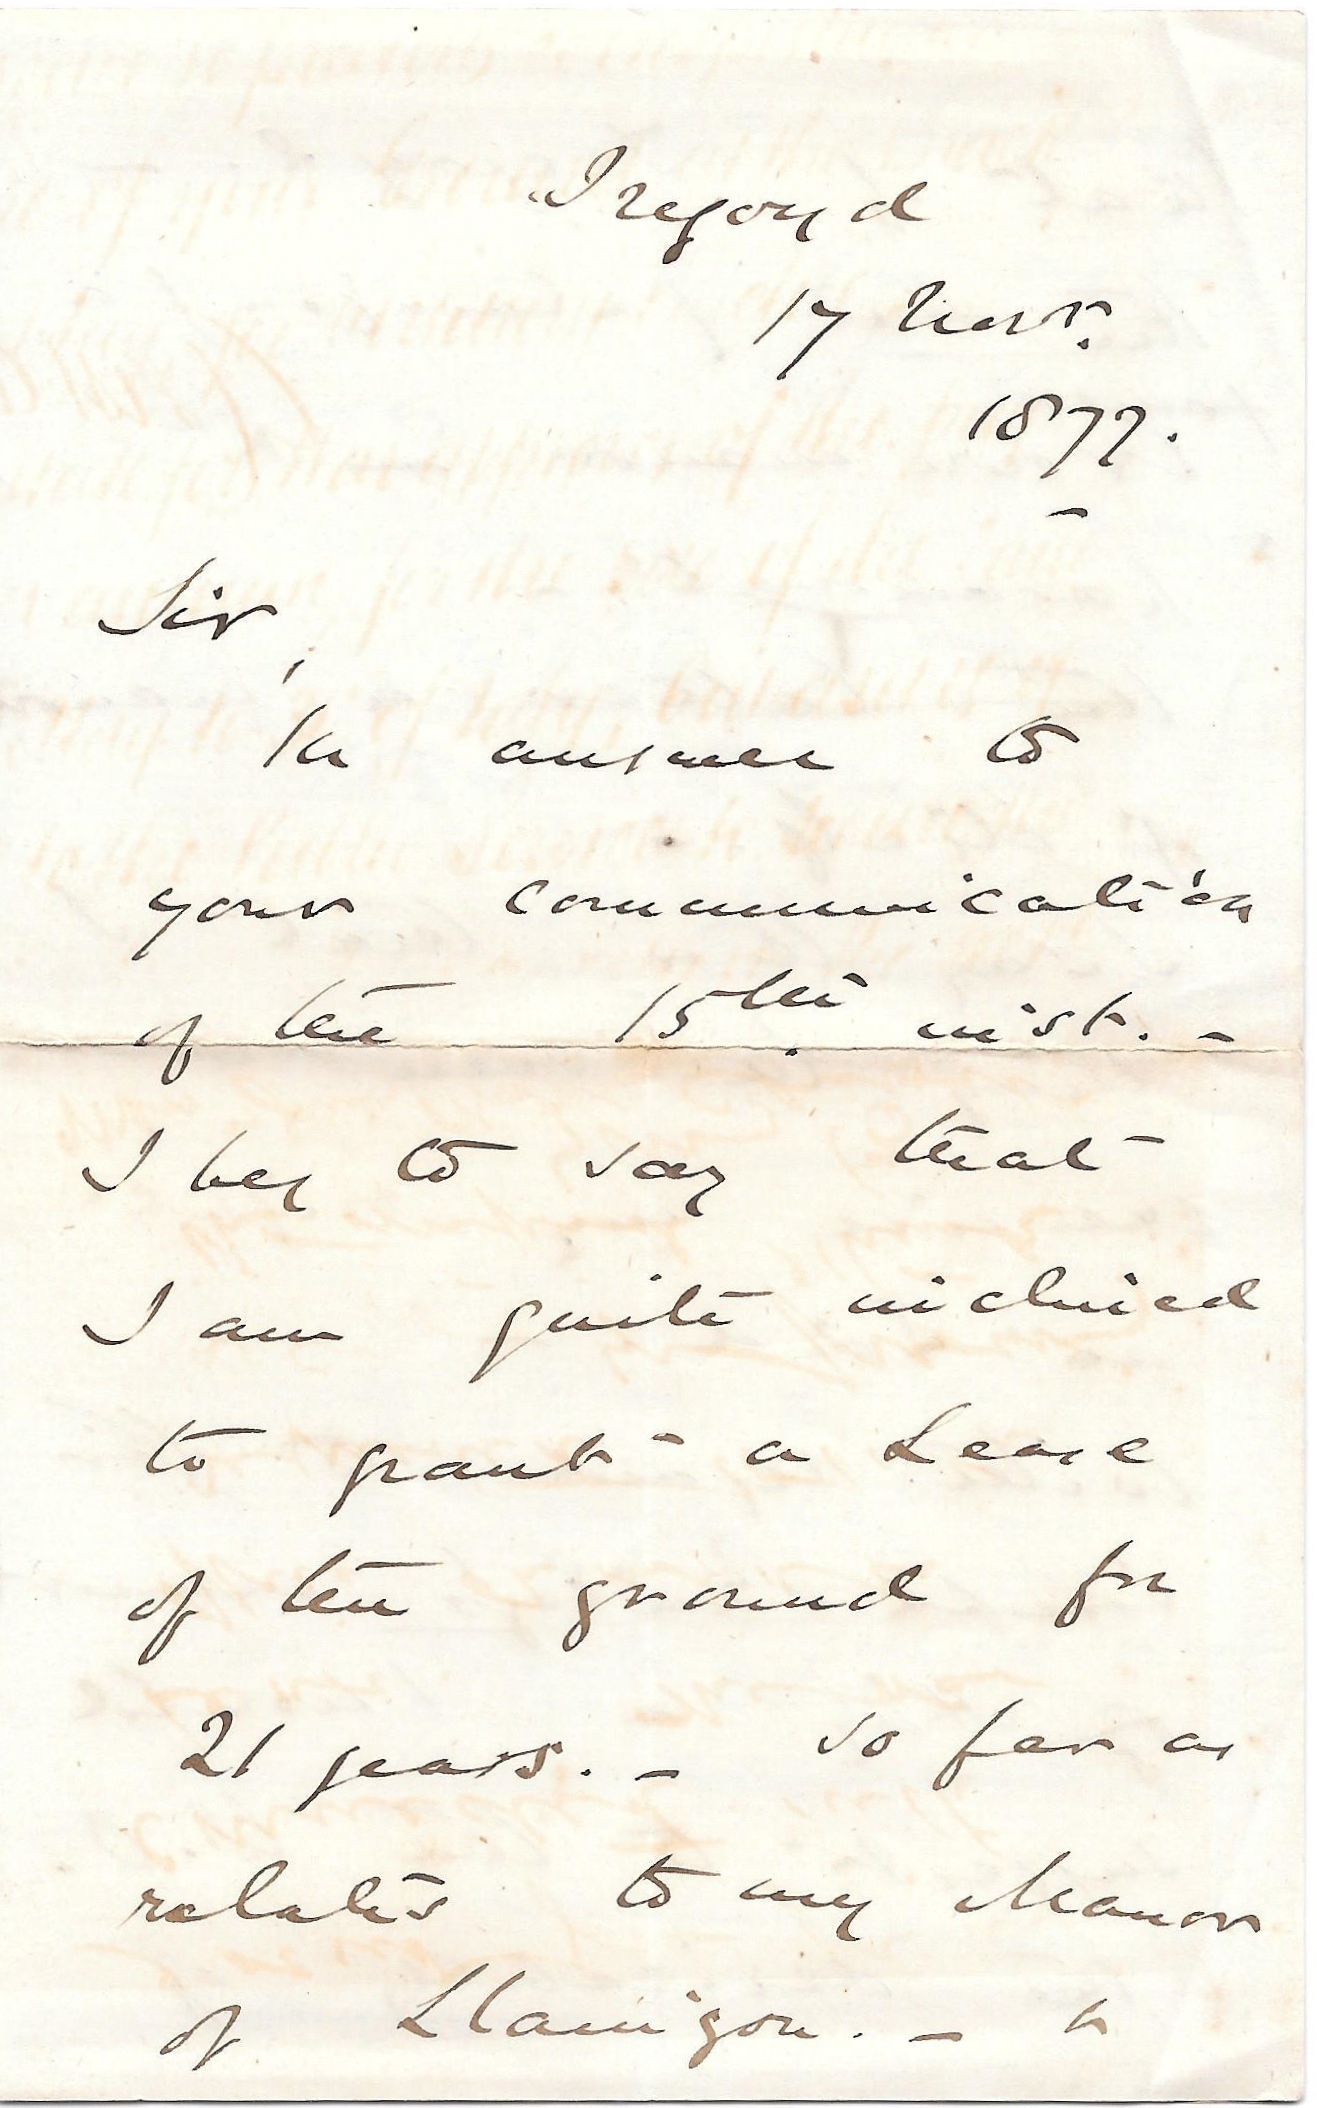 Tregoyd
17 Novr.
1877.
Sir,
In answer to
your communication
of the 15th inst. -
I beg to say that
I am quite inclined
to grant - a Lease
of the ground for
21 years. - so far as
relates to my Manor
of Llanigon. - &